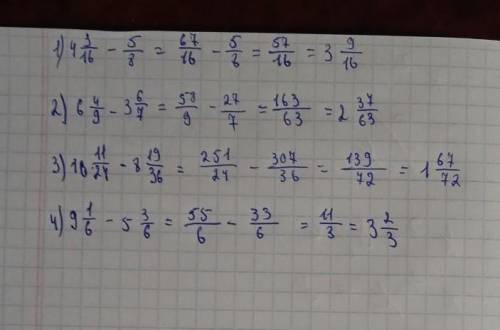 1) 4 3/16 - 5/8 = 67/16 - 5/8 = 57/16 = 3 9/16
2) 6 4/9 - 3 6/7 = 58/9 - 27/7 = 163/63 = 2 37/63
3) 10 11/24 - 8 19/36 = 251/24 - 307/36 = 139/72 = 1 67/72
4) 9 1/6 - 5 3/6 = 55/6 - 33/6 = 11/3 = 3 2/3